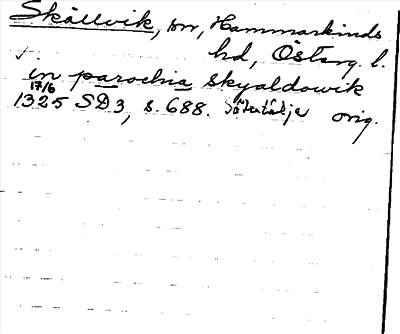 Skällvik, sn, Hammarkinds
hd, Östерg. l.
in parochia skyaldowik
17/6
1325 SD3, s. 688. Södertälje orig.